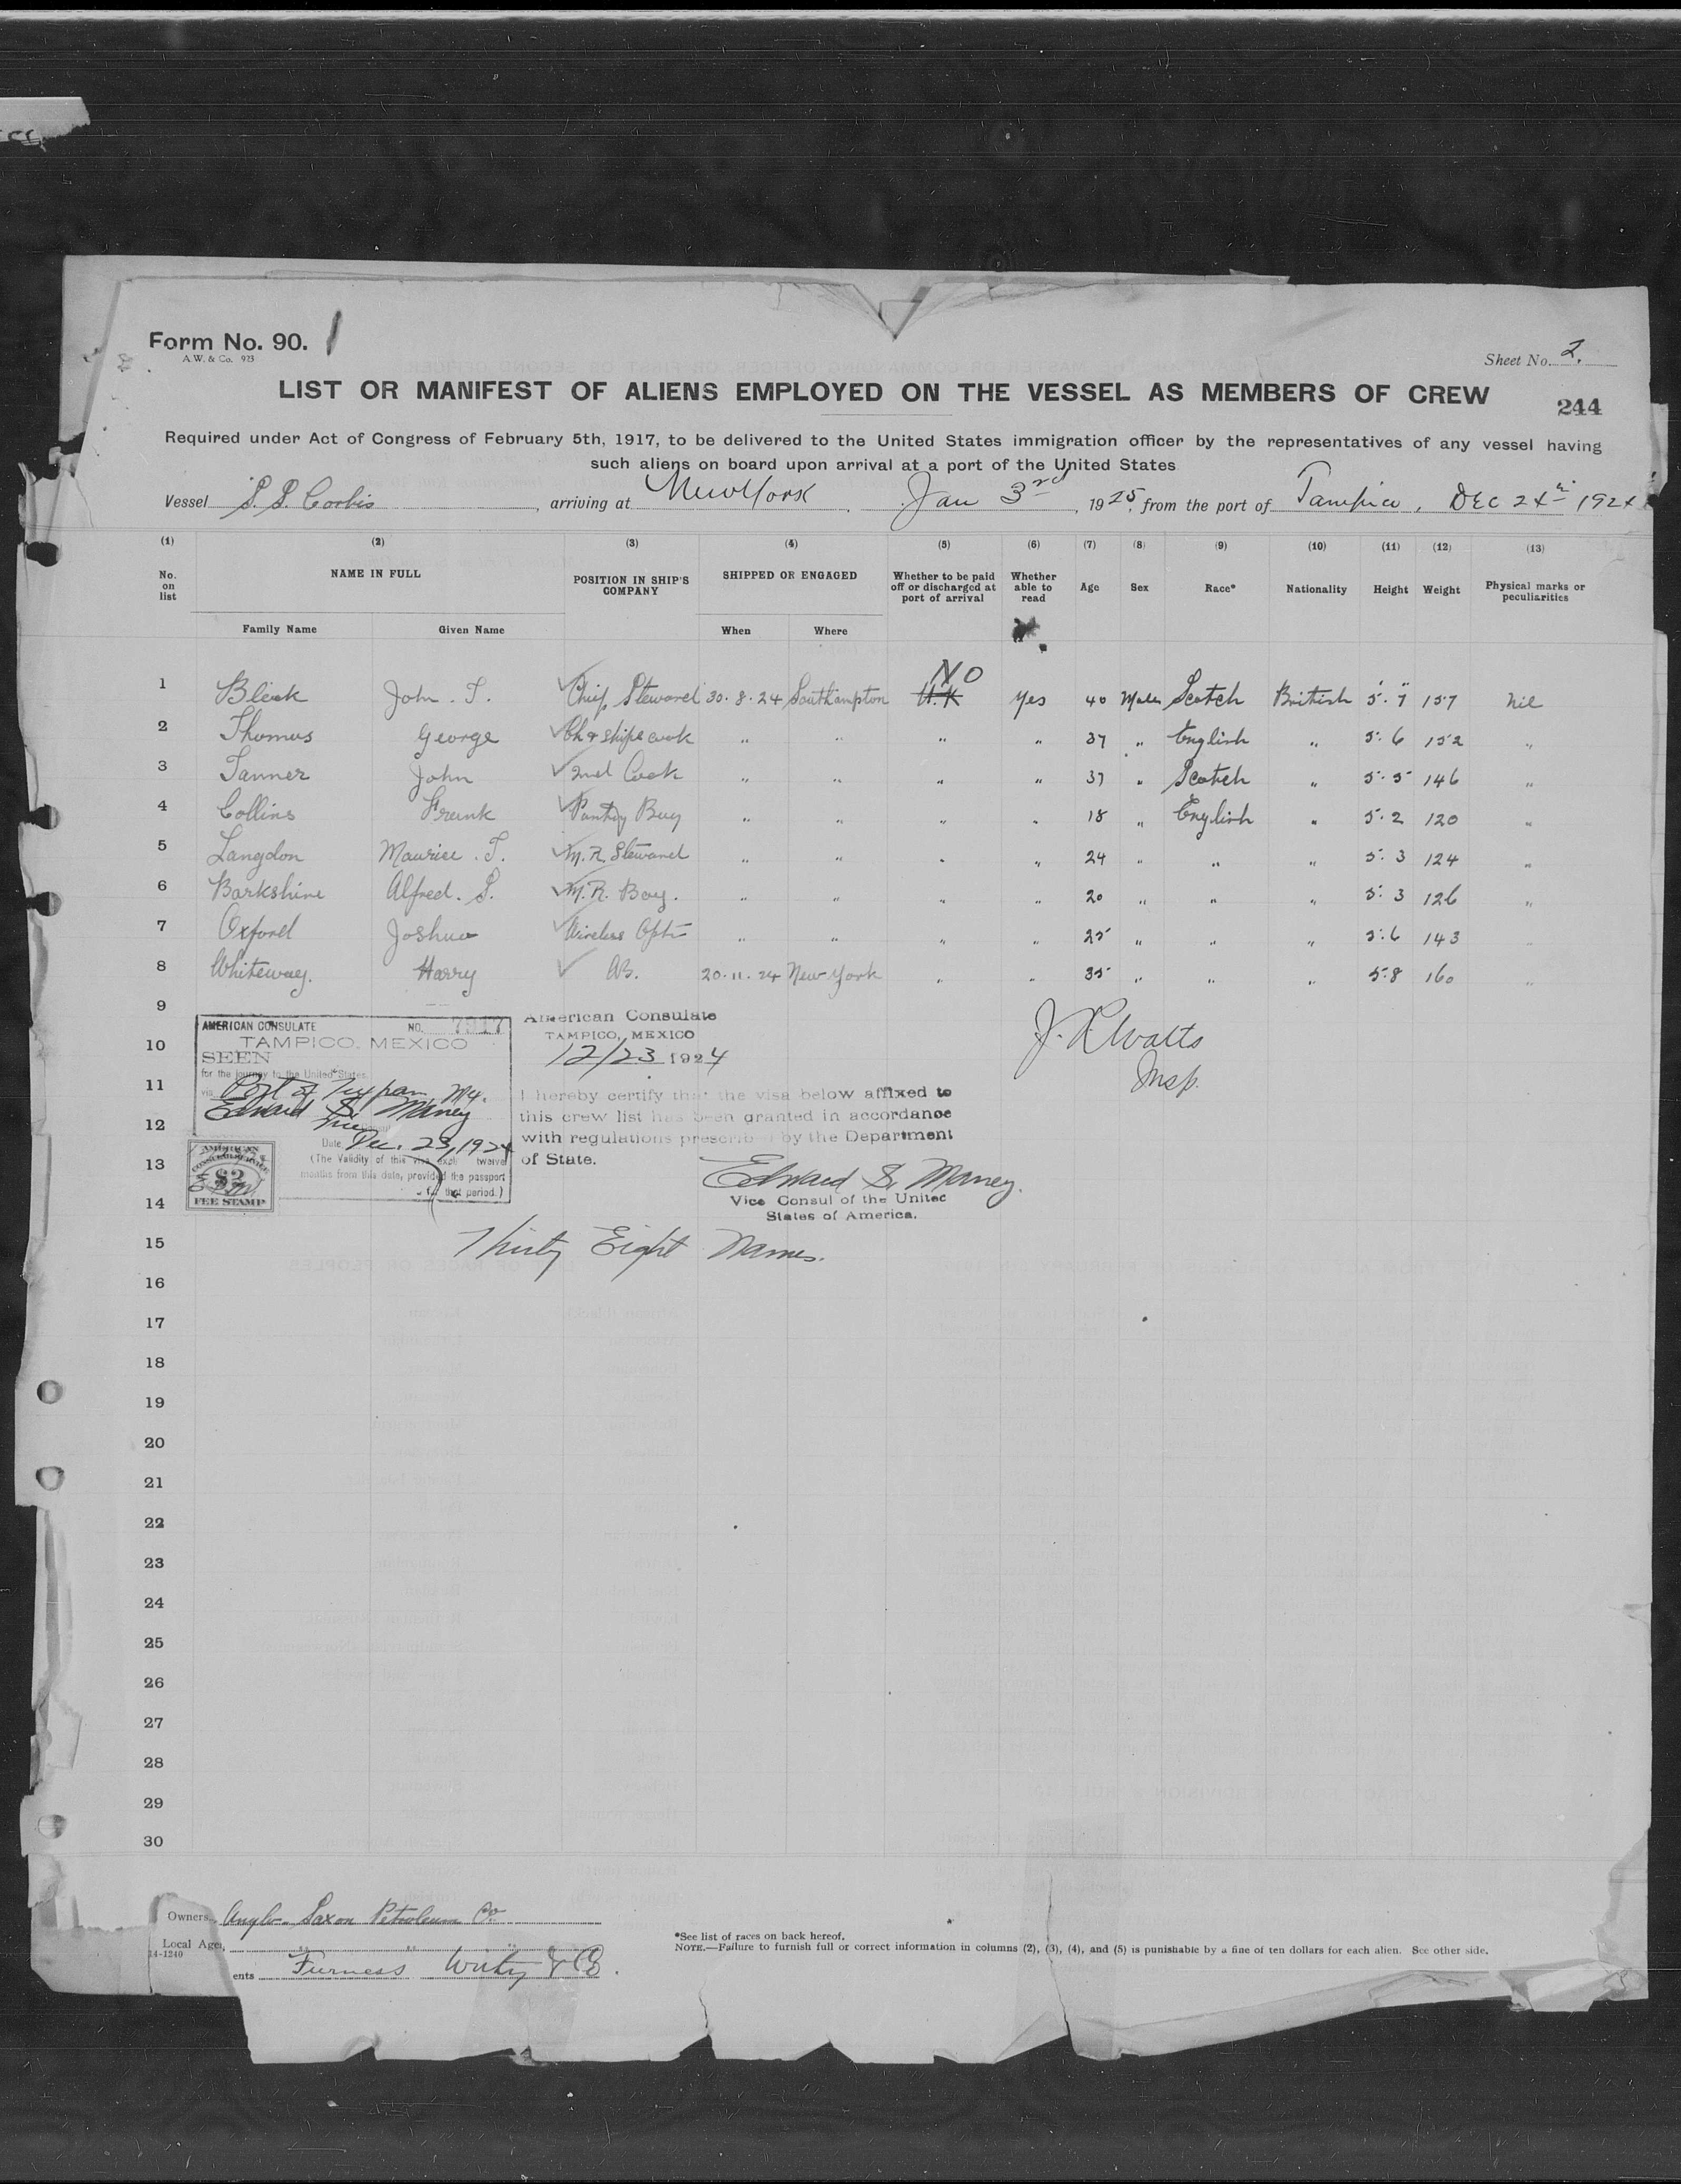 Form No. 90.
A.W. & Co. 923
Sheet No. 2.
LIST OR MANIFEST OF ALIENS EMPLOYED ON THE VESSEL AS MEMBERS OF CREW
244
Required under Act of Congress of February 5th, 1917, to be delivered to the United States immigration officer by the representatives of any vessel having
such aliens on board upon arrival at a port of the United States
Vessel S.S. Corbis, arriving at New York, Jan 3rd, 1925, from the port of Tampico, DEC 24th 1924
(1) (2) (3) (4) (5) (6) (7) (8) (9) (10) (11) (12) (13)
No. on list NAME IN FULL POSITION IN SHIP'S COMPANY SHIPPED OR ENGAGED Whether to be paid off or discharged at port of arrival Whether able to read Age Sex Race* Nationality Height Weight Physical marks or peculiarities
Family Name Given Name When Where
NO
1 Bleak John. T. Chief Steward 30.8.24 Southampton U.K Yes 40 Male Scotch British 5.7 157 nil
2 Thomas George Ch & ships cook " " " " 37 " English " 5.6 152 "
3 Tanner John 2nd Cook " " " " 37 " Scotch " 5.5 146 "
4 Collins Frank Pantry Boy " " " " 18 " English " 5.2 120 "
5 Langdon Maurice. T. M.R. Steward " " " " 24 " " " 5.3 124 "
6 Barkshire Alfred. S. M.R. Boy. " " " " 20 " " " 5.3 126 "
7 Oxford Joshua Wireless Optr " " " " 25 " " " 5.6 143 "
8 Whiteway. Harry AB. 20.11.24 New York " " 35 " " " 5.8 160 "
9
10
11
12
13
14
15
16
17
18
19
20
21
22
23
24
25
26
27
28
29
30
AMERICAN CONSULATE NO. 7317
TAMPICO, MEXICO
SEEN
for the journey to the United States.
via Port of Tuxpan Mx.
Edward S. Maney
Vice
Date Dec. 23, 1924
(The Validity of this visa expires twelve
months from this date, provided the passport
for that period.)
AMERICAN
CONSULAR SERVICE
$2
FEE STAMP
American Consulate
TAMPICO, MEXICO
12/23 1924
I hereby certify that the visa below affixed to
this crew list has been granted in accordance
with regulations prescribed by the Department
of State.
Edward S. Maney.
Vice Consul of the United
States of America.
J. R. Watts
Insp.
Thirty Eight Names.
Owners Anglo-Saxon Petroleum Co
Local Agents
14-1240
ents Furness Withy & Co.
*See list of races on back hereof.
NOTE.—Failure to furnish full or correct information in columns (2), (3), (4), and (5) is punishable by a fine of ten dollars for each alien. See other side.